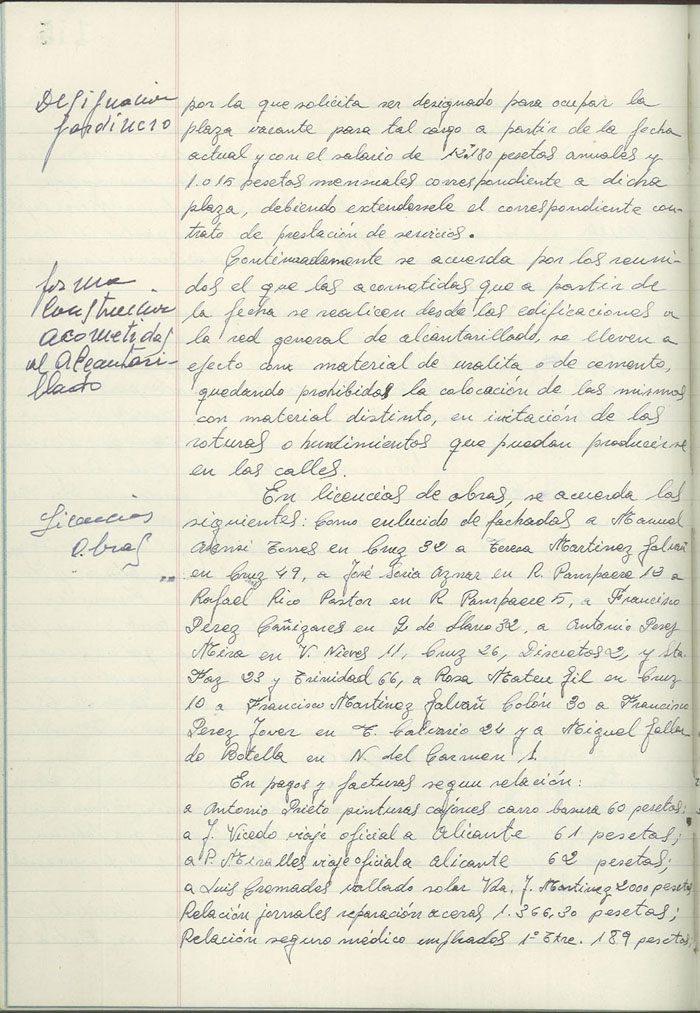 Designacion
Jardinero
por la que solicita ser designado para ocupar la
plaza vacante para tal cargo a partir de la fecha
actual y con el salario de 12.180 pesetas anuales y
1.015 pesetas mensuales correspondiente a dicha
plaza, debiendo extendersele el correspondiente con-
trato de prestación de servicios.
forma
Construccion
acometidas
al Alcantari-
llado
Continuadamente se acuerda por los reuni-
dos el que las acometidas que a partir de
la fecha se realicen desde las edificaciones a
la red general de alcantarillado, se lleven a
efecto con material de uralita o de cemento,
quedando prohibidas la colocación de las mismas
con material distinto, en evitación de las
roturas o hundimientos que puedan producirse
en las calles.
Licencias
Obras
En licencias de obras, se acuerda las
siguientes: Como enlucido de fachadas a Manuel
Asensi Torres en Cruz 32 a Teresa Martinez Galvañ
en Cruz 49, a José Soria Aznar en R. Pampaere 13 a
Rafael Rico Pastor en R. Pampaere 5, a Francisco
Perez Cañizares en Q de Llano 32, a Antonio Perez
Mira en V. Nieves 11, Cruz 26, Discretos 2, y Sta.
Faz 23 y Trinidad 66, a Rosa Mateu Gil en Cruz
10 a Francisco Martinez Galvañ Colón 30 a Francisco
Perez Jover en T. Calvario 24 y a Miguel Gallar-
do Botella en N. del Carmen 1.
En pagos y facturas segun relación:
a Antonio Prieto pinturas cajones carro basura 60 pesetas;
a J. Vicedo viaje oficial a Alicante 61 pesetas;
a P. Miralles viaje oficial a Alicante 62 pesetas;
a Luis Cremades vallado solar Vda. J. Martinez 2000 pesetas
Relación jornales reparación aceras 1.366,30 pesetas;
Relación seguro médico empleados 1º Ttre. 189 pesetas,